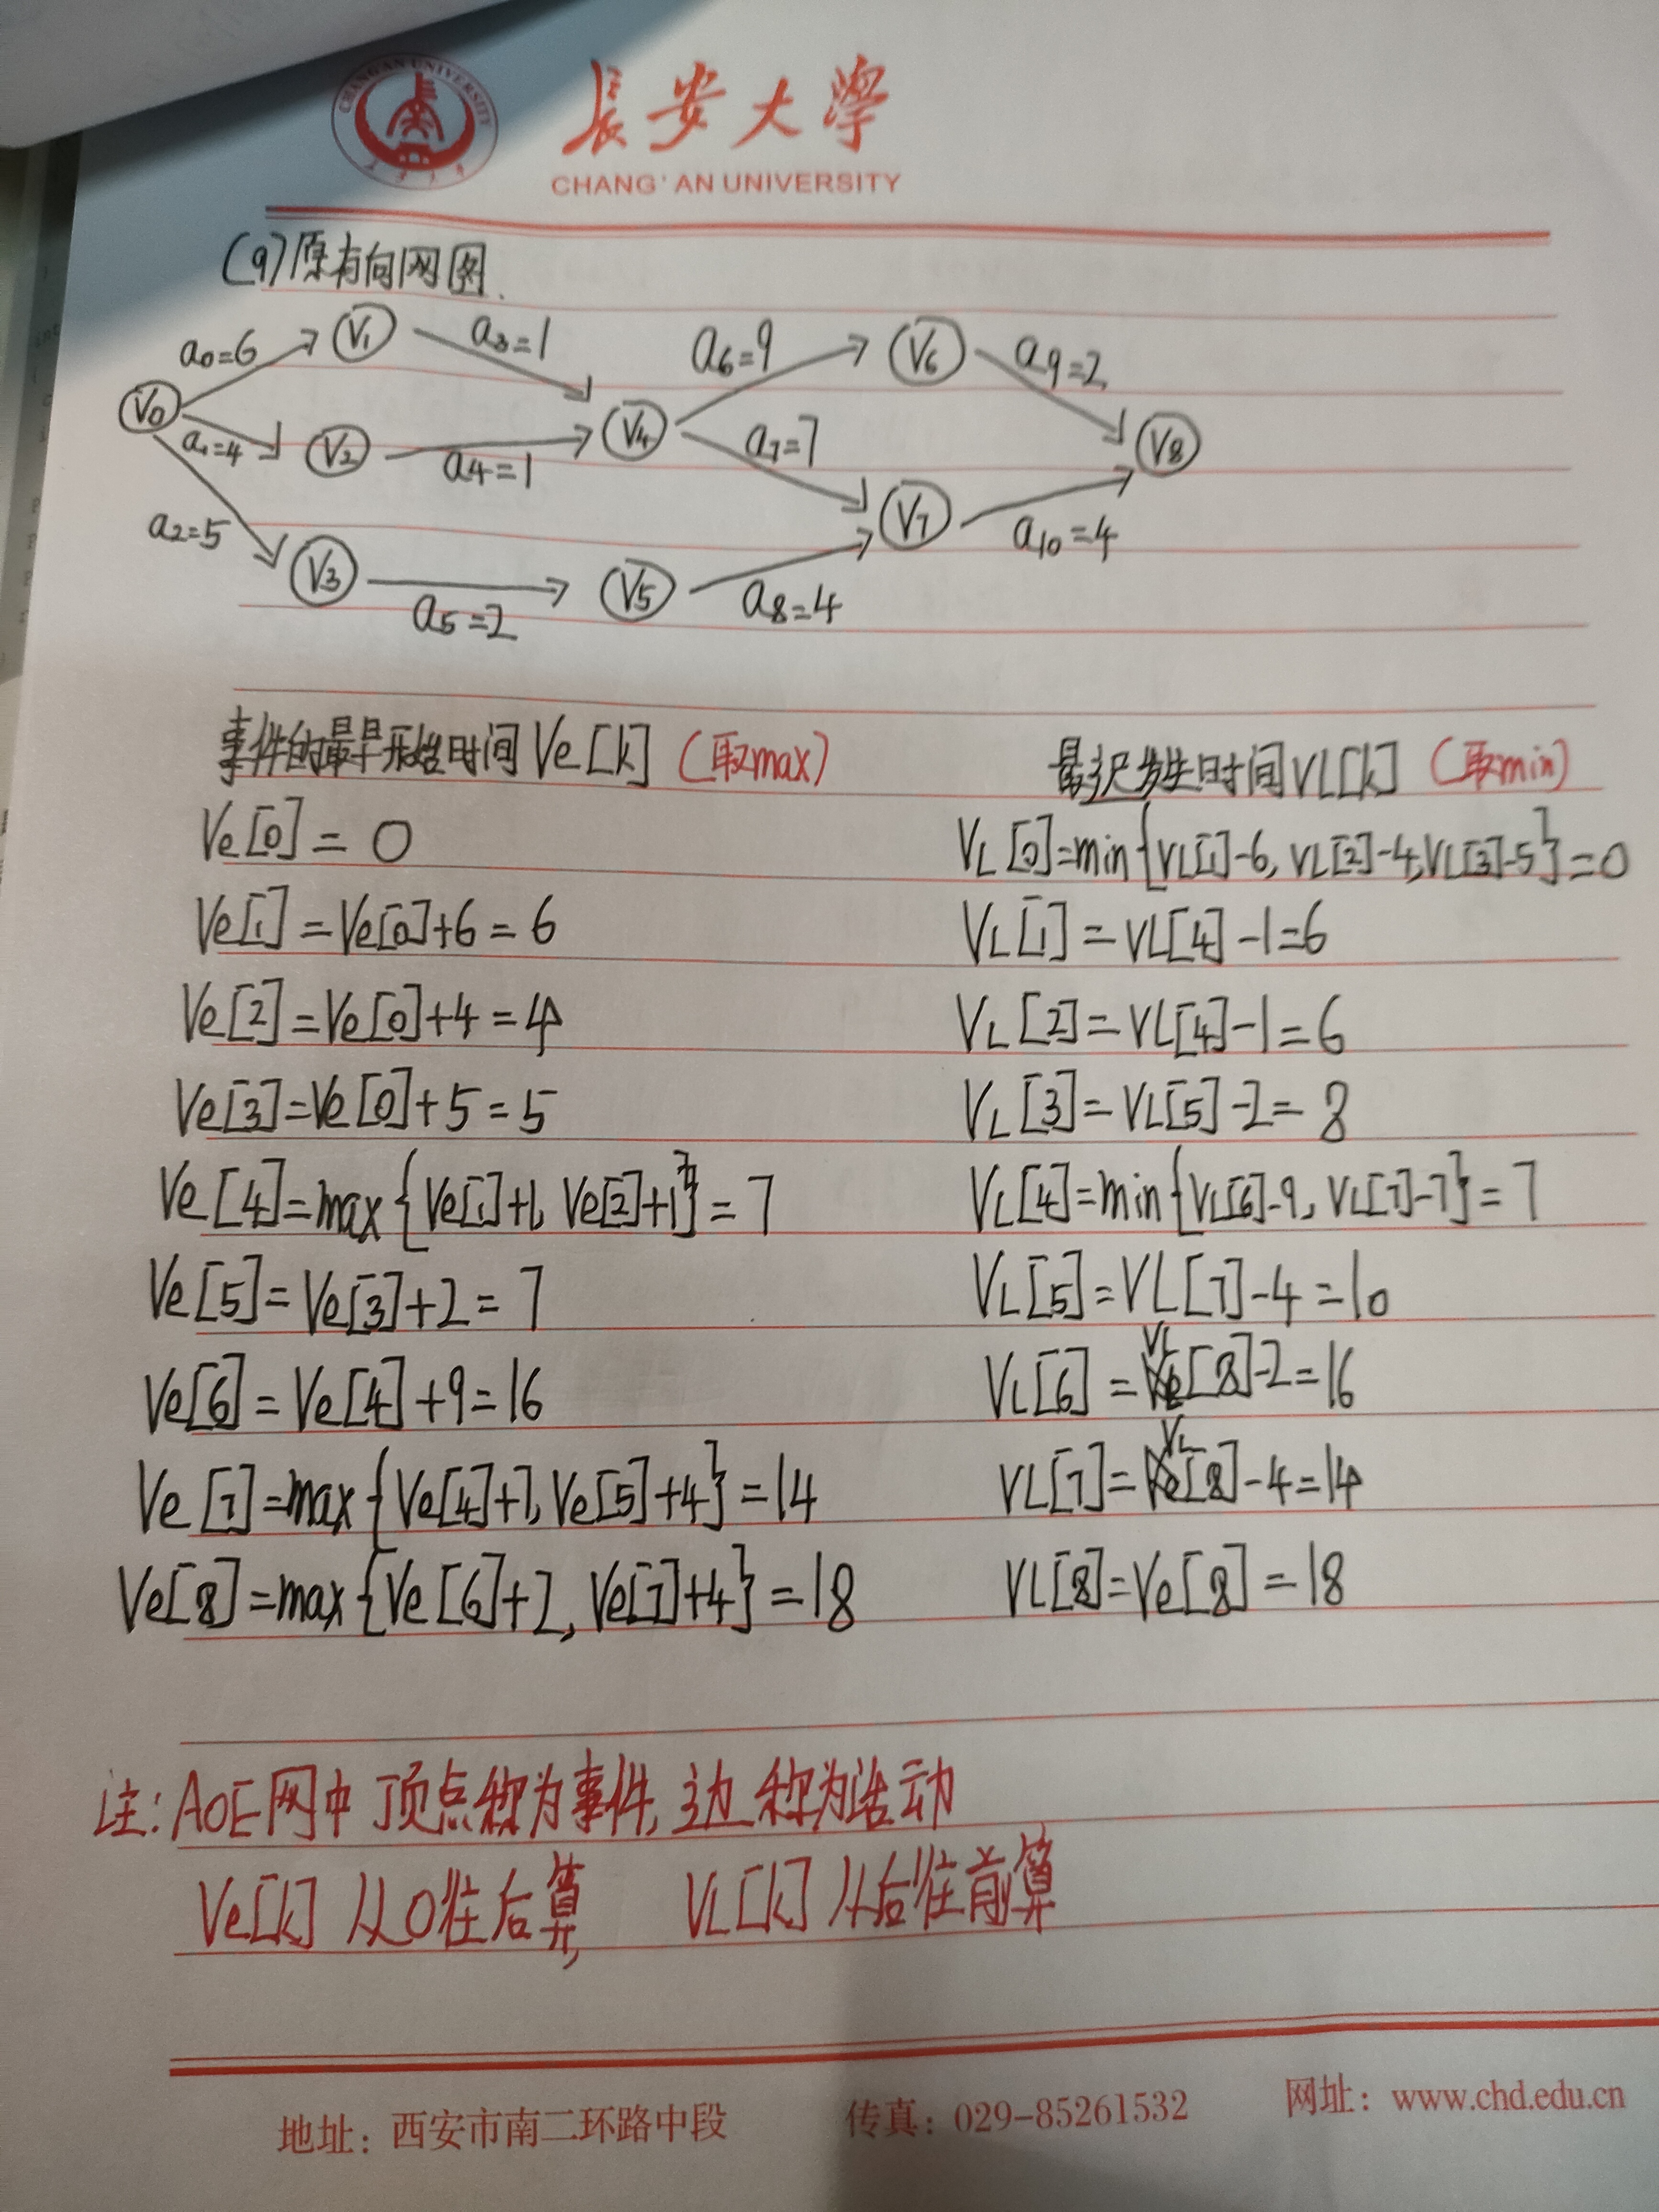 長安大學
CHANG'AN UNIVERSITY
(9)原有向网图.
a0=6 V1 a3=1 a6=9 V6 a9=2
V0 a1=4 V2 a4=1 V4 a7=7 V8
a2=5 V3 a5=2 V5 a8=4 V7 a10=4
事件的最早开始时间Ve[k](取max) 最迟发生时间VL[k](取min)
Ve[0]=0 VL[0]=min{VL[1]-6,VL[2]-4,VL[3]-5}=0
Ve[1]=Ve[0]+6=6 VL[1]=VL[4]-1=6
Ve[2]=Ve[0]+4=4 VL[2]=VL[4]-1=6
Ve[3]=Ve[0]+5=5 VL[3]=VL[5]-2=8
Ve[4]=max{Ve[1]+1,Ve[2]+1}=7 VL[4]=min{VL[6]-9,VL[7]-7}=7
Ve[5]=Ve[3]+2=7 VL[5]=VL[7]-4=10
Ve[6]=Ve[4]+9=16 VL[6]=VL[8]-2=16
Ve[7]=max{Ve[4]+7,Ve[5]+4}=14 VL[7]=VL[8]-4=14
Ve[8]=max{Ve[6]+2,Ve[7]+4}=18 VL[8]=Ve[8]=18
注:AOE网中顶点称为事件,边称为活动
Ve[k]从0往后算, VL[k]从后往前算
地址：西安市南二环路中段 传真：029-85261532 网址：www.chd.edu.cn